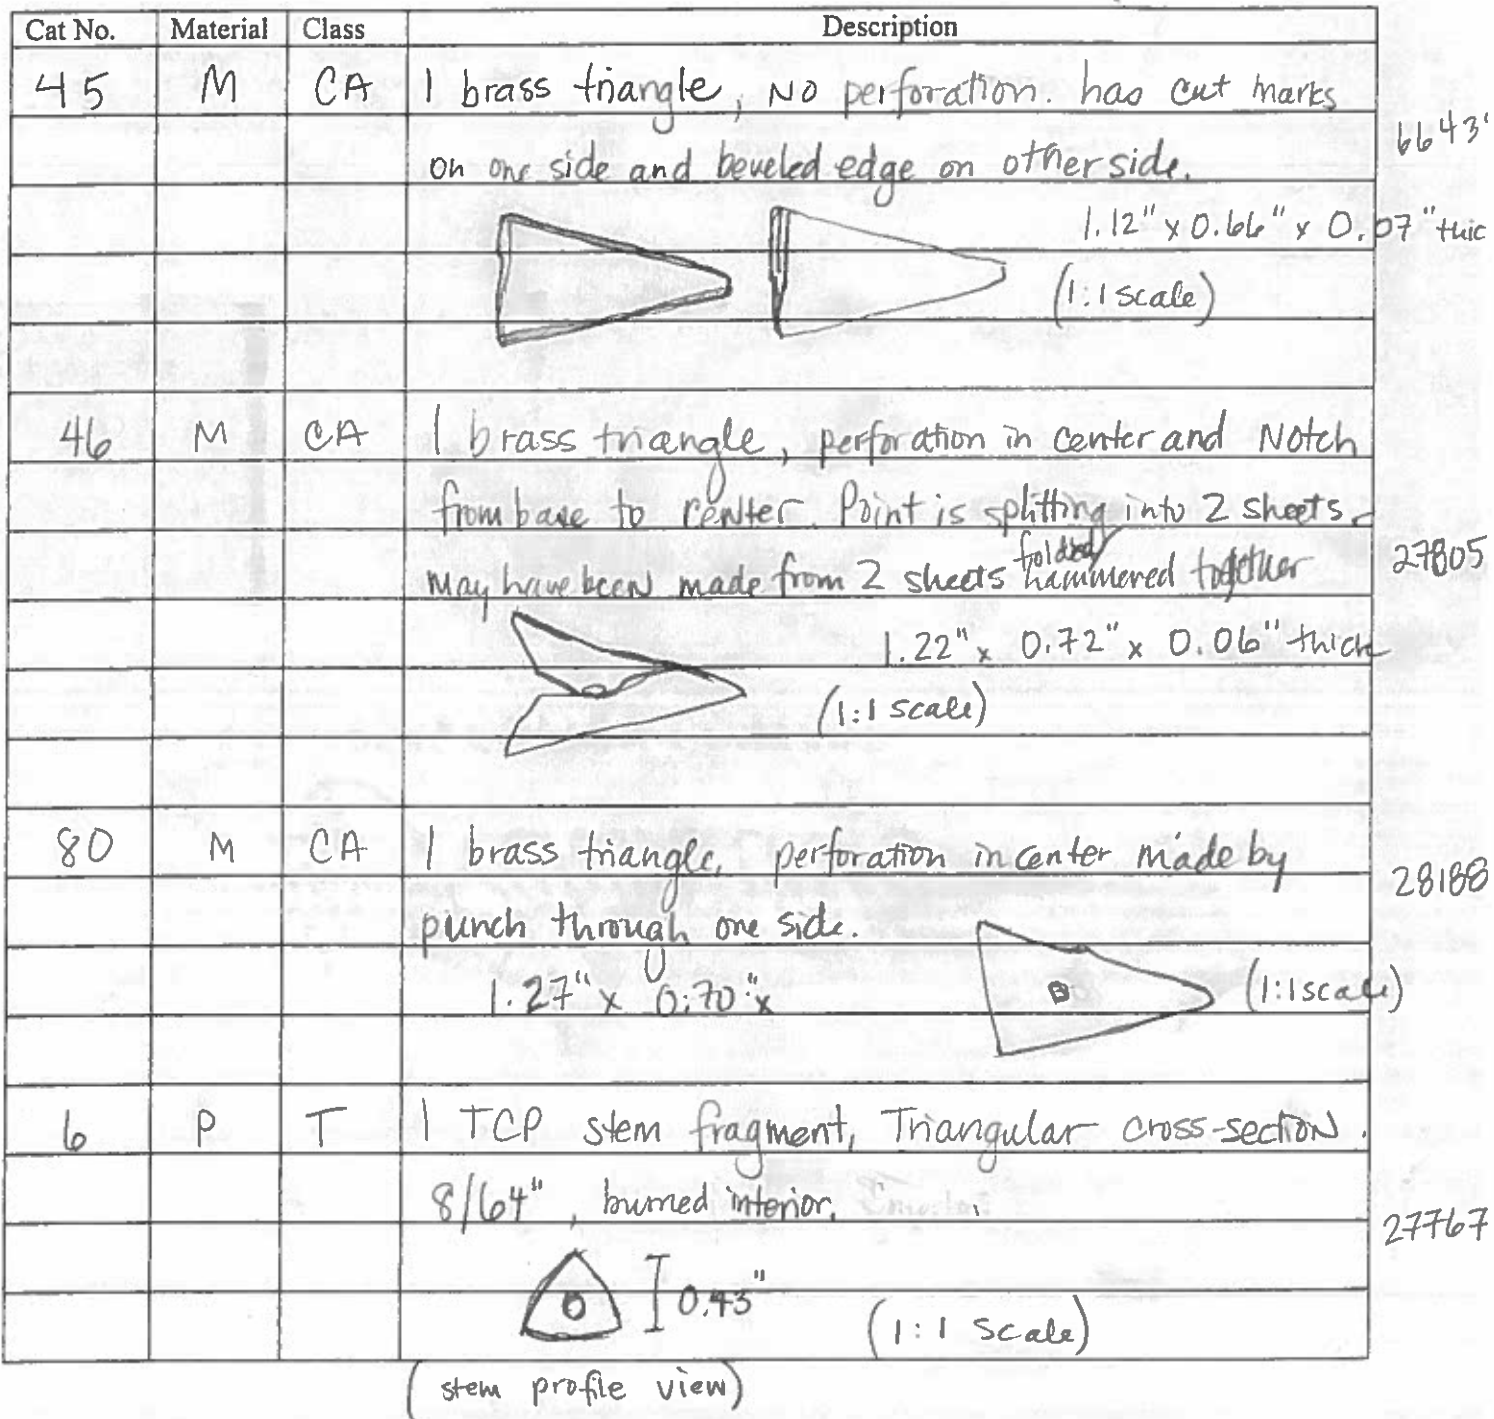 Cat No. Material Class Description
45 M CA 1 brass triangle, No perforation. has cut marks
6643
on one side and beveled edge on other side.
1.12" x 0.66" x 0.07" thic
(1:1 scale)
46 M CA 1 brass triangle, perforation in center and Notch
from base to center. Point is splitting into 2 sheets.
27805
may have been made from 2 sheets folded/ hammered together
1.22" x 0.72" x 0.06" thick
(1:1 scale)
80 M CA 1 brass triangle, perforation in center made by
28188
punch through one side.
1.27" x 0.70" x
(1:1 scale)
6 P T 1 TCP stem fragment, Triangular cross-section.
8/64", burned interior.
27767
0.43"
(1:1 Scale)
(stem profile view)